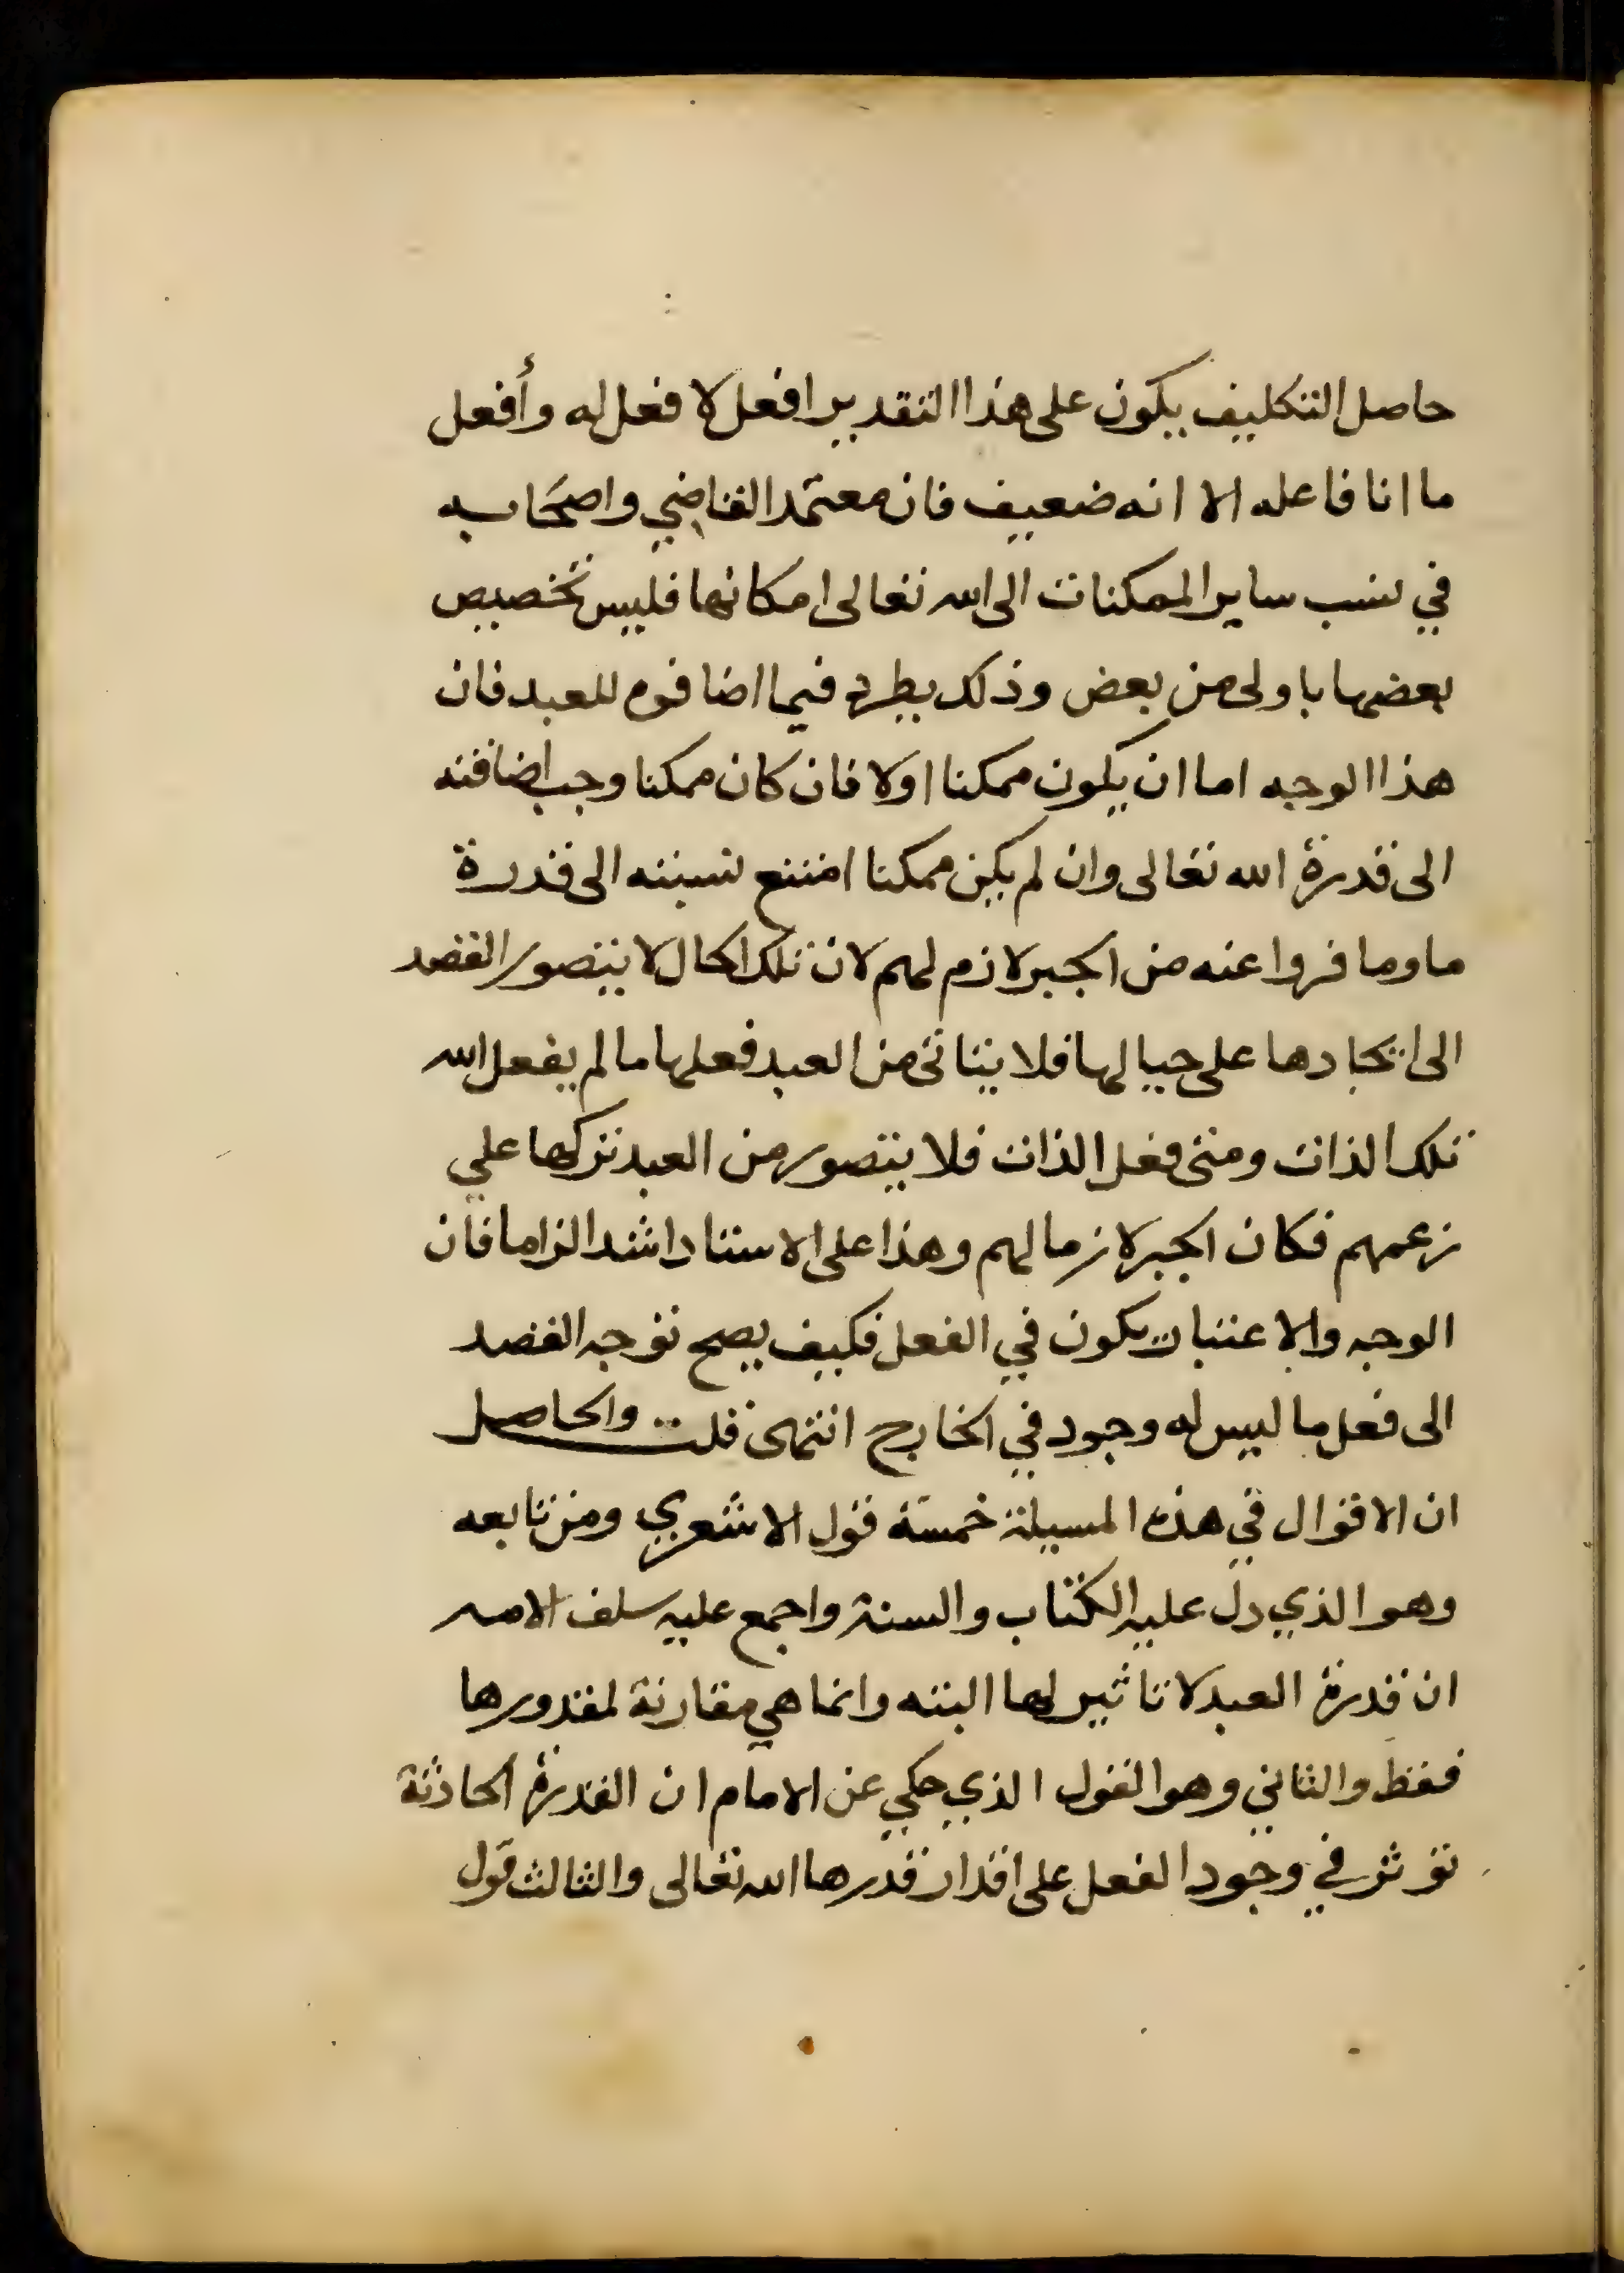 حاصل التكليف يكون على هذا التقدير افعل لا فعل له وأفعل
ما انا فاعله الا انه ضعيف فان معتمد القاضي واصحابه
في نسب ساير الممكنات الى الله تعالى امكانها فليس تخصيص
بعضها باولى من بعض وذلك يطرد فيما اضافوه للعبد فان
هذا الوجه اما ان يكون ممكنا اولا فان كان ممكنا وجب اضافته
الى قدرة الله تعالى وان لم يكن ممكنا امتنع نسبته الى قدرة
ما وما فروا عنه من الجبر لازم لهم لان تلك الحال لا يتصور القصد
الى ايجادها على حيالها فلا يتاتى من العبد فعلها ما لم يفعل الله
تلك الذات ومتى فعل الذات فلا يتصور من العبد تركها علي
زعمهم فكان الجبر لازما لهم وهذا على الاستناد اشد الزاما فان
الوجه والاعتبار يكون في الفعل فكيف يصح توجه القصد
الى فعل ما ليس له وجود في الخارج انتهى قلت والحاصل
ان الاقوال في هذه المسيلة خمسة قول الاشعري ومن تابعه
وهو الذي دل عليه الكتاب والسنة واجمع عليه سلف الامه
ان قدرة العبد لا تاثير لها البته وانما هي مقارنة لمقدورها
فقط والثاني وهو القول الذي حكي عن الامام ان القدرة الحادثة
توثر في وجود الفعل على اقدار قدرها الله تعالى والثالث قول